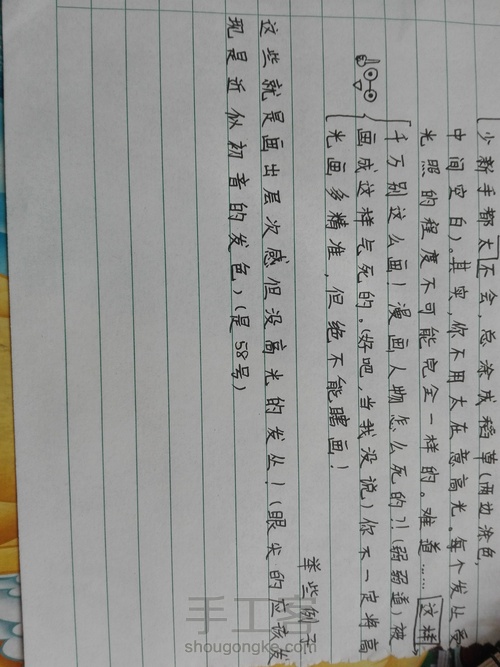 小新手都太不会，总涂成稻草(两边涂色，
中间空白)。其实，你不用太在意高光。每个发丝受
光照的程度不可能完全一样的。难道……这样
千万别这么画！漫画人物怎么死的?!(弱弱道)被
画成这样气死的。(好吧，当我没说)你不一定将高
光画多精准，但绝不能瞎画！
举些例子
这些就是画出层次感但没高光的发丝！(眼尖的应该发
现是近似初音的发色)(是58号)
手工客
shougongke.com